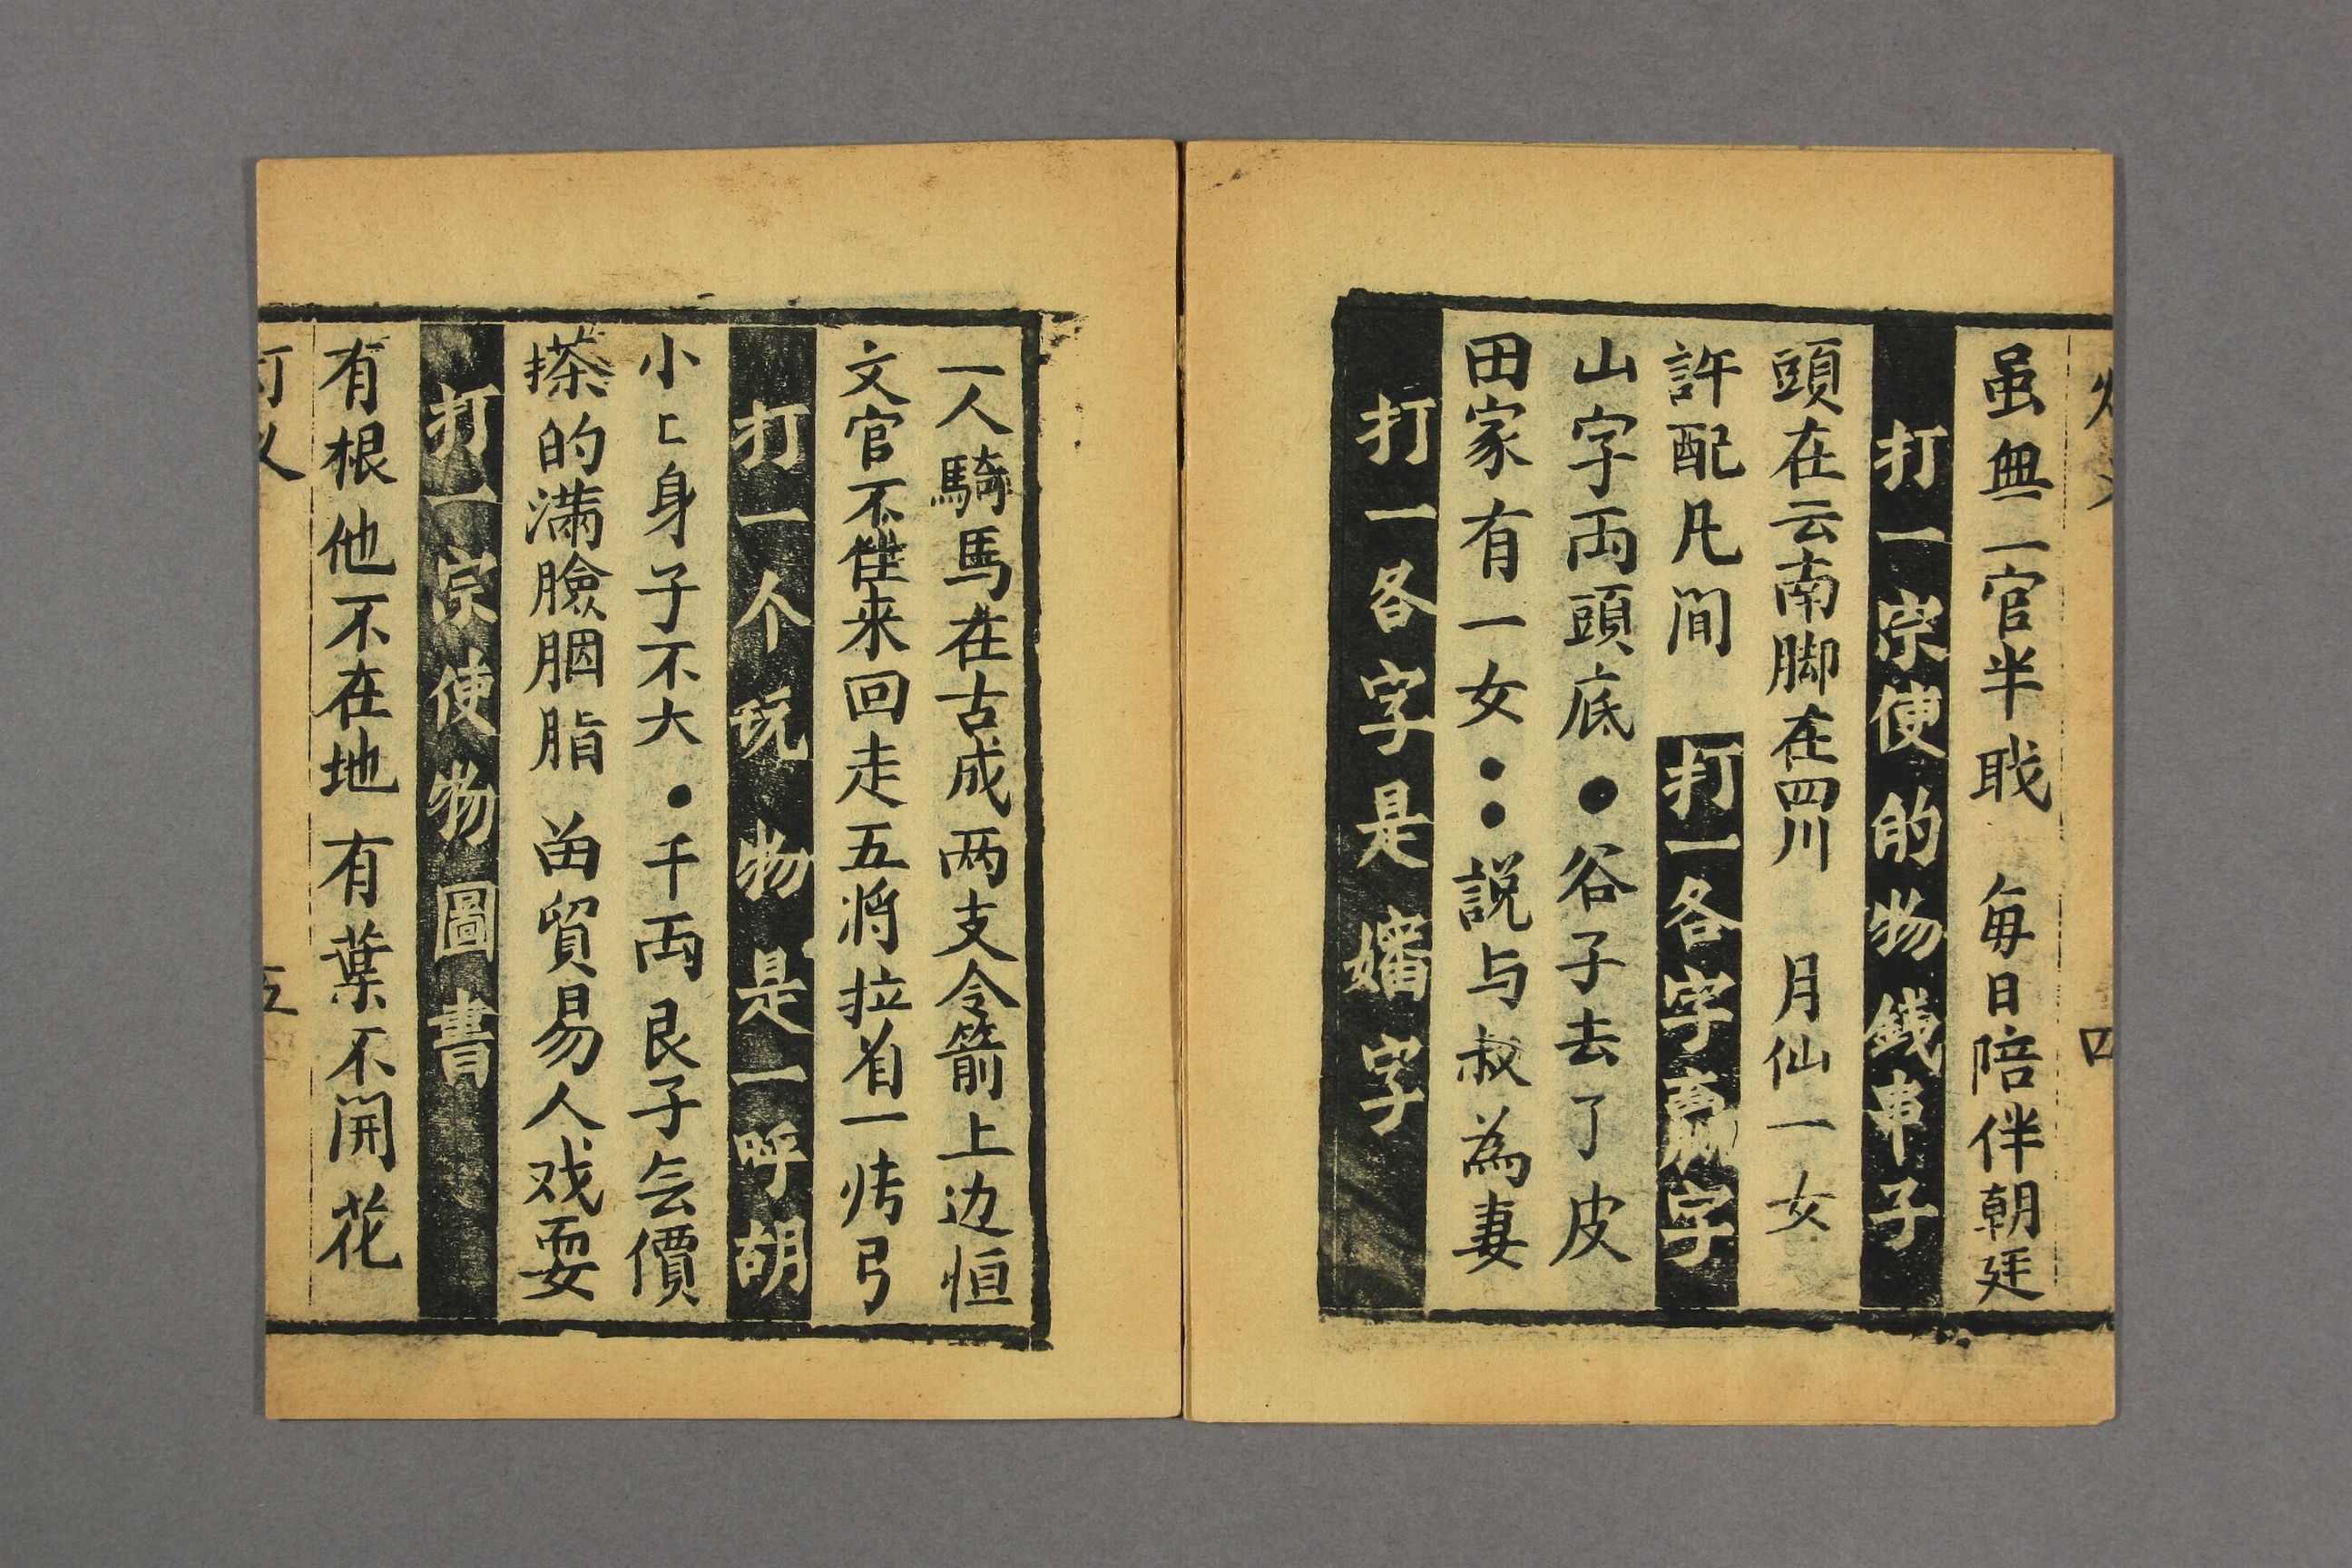 四
虽無一官半戝　每日陪伴朝廷
打一宗使的物錢串子
頭在云南脚在四川　月仙一女
許配凡间　打一各字贏字
山字両頭底●谷子去了皮
田家有一女●●説与叔為妻
打一各字是嬸字
一人騎馬在古成两支令箭上边恒
文官不往来回走五将拉着一弓
打一个玩物是一呼胡
小ヒ身子不大●千両艮子会價
搽的满臉胭脂　苗貿易人戏耍
打一宗使物圖書
有根他不在地有葉不開花
灯
五